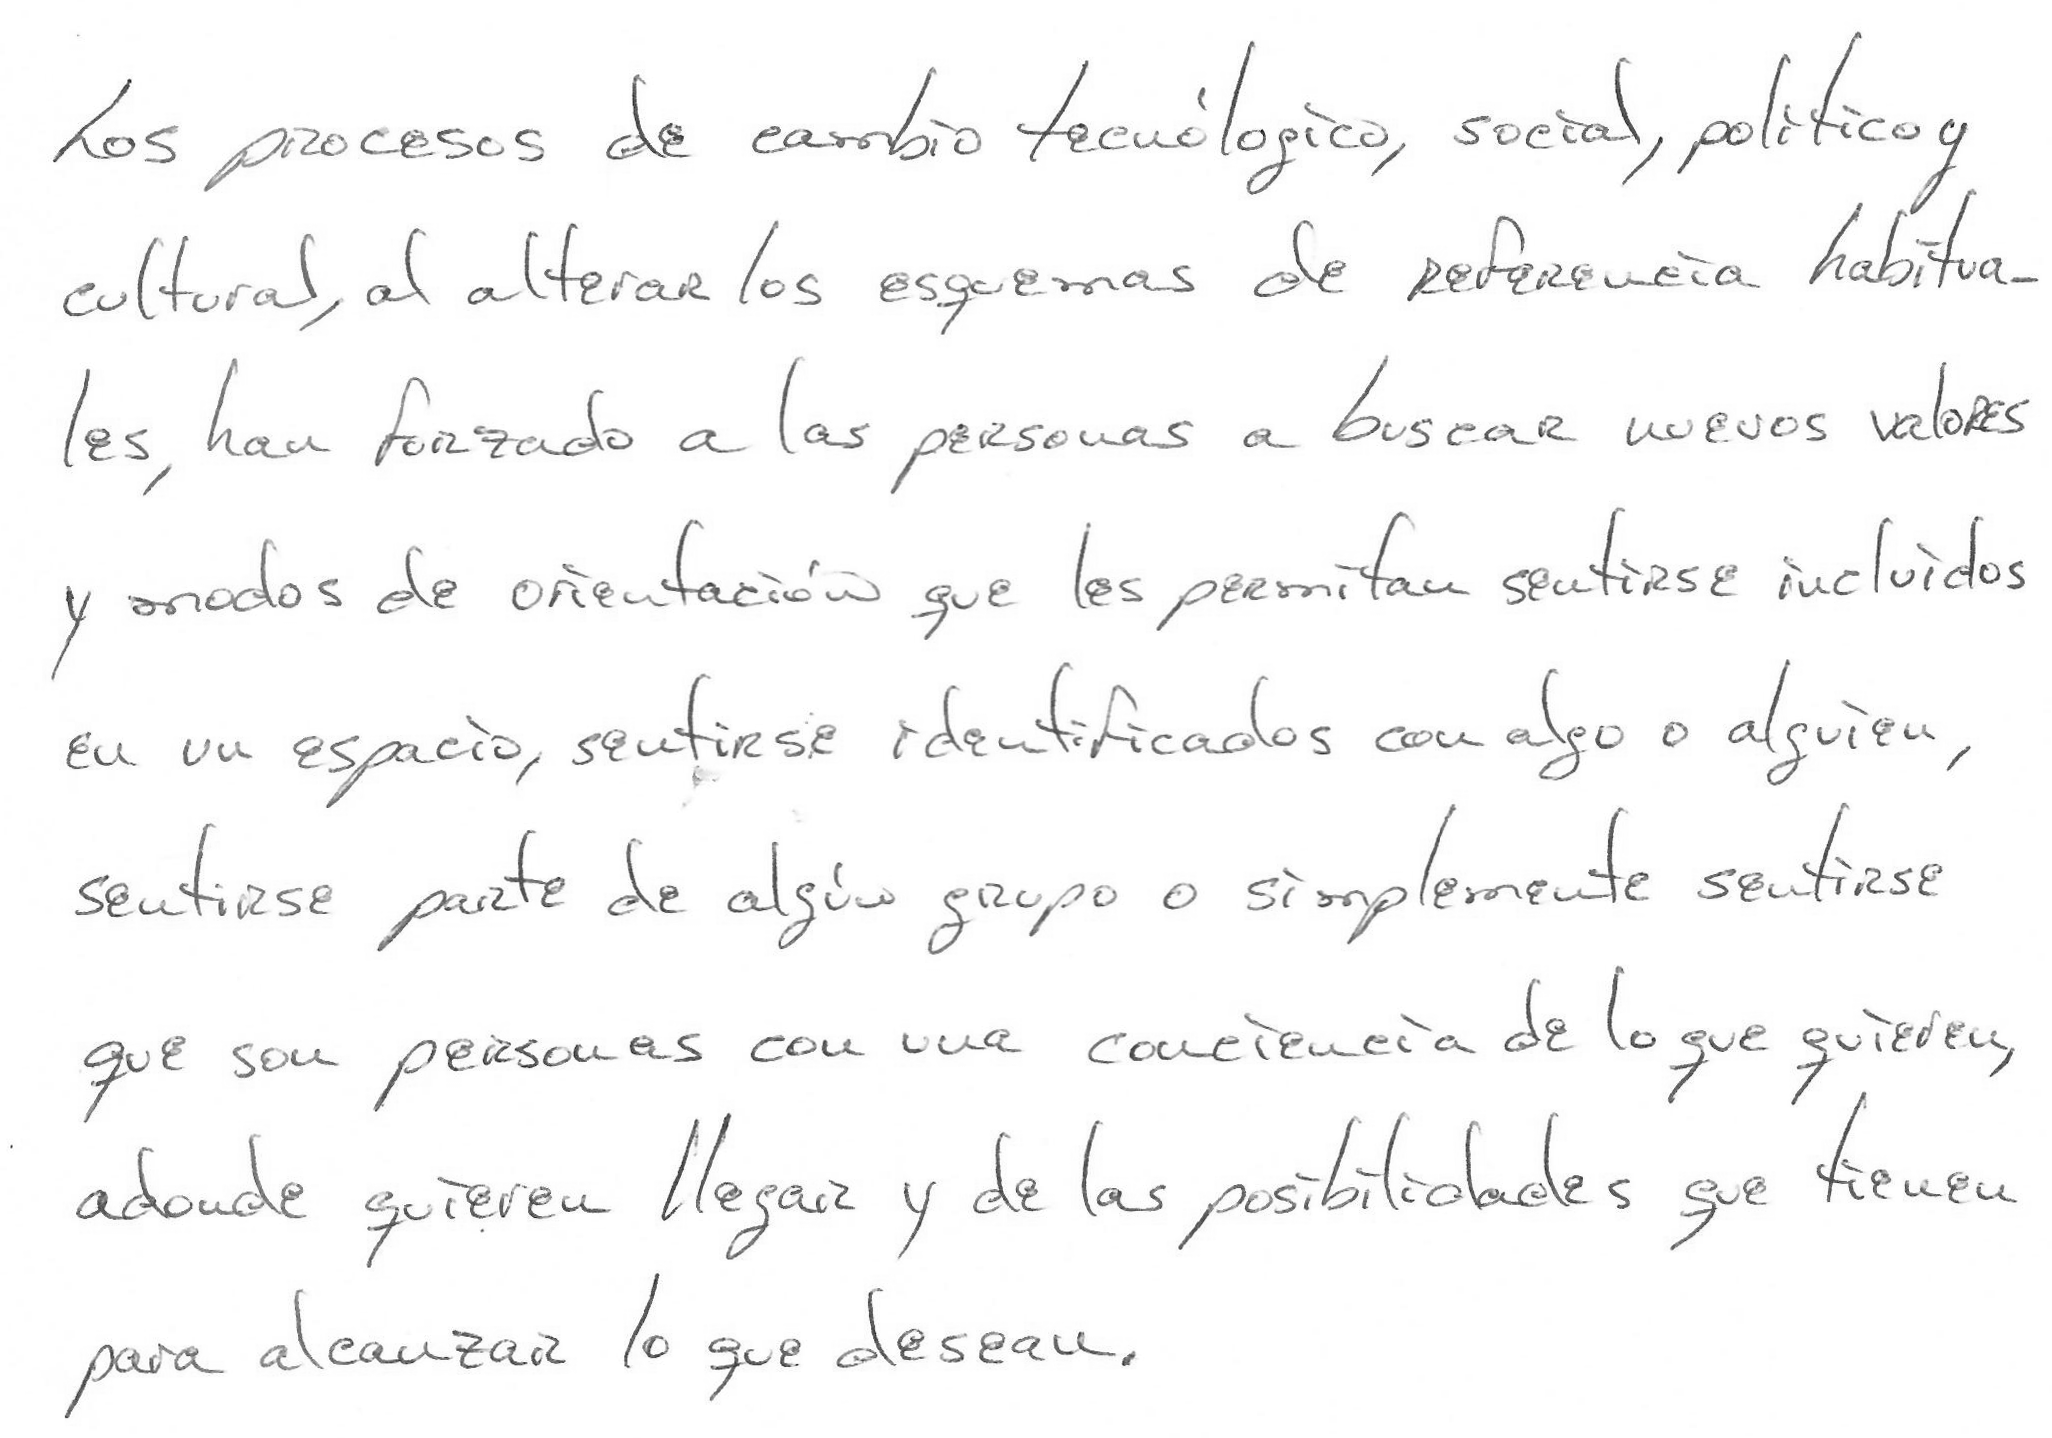 Los procesos de cambio tecnólogico, social, politico y
cultural, al alterar los esquemas de referencia habitua-
les, han forzado a las personas a buscar nuevos valores
y modos de orientación que les permitan sentirse incluidos
en un espacio, sentirse identificados con algo o alguien,
sentirse parte de algún grupo o simplemente sentirse
que son personas con una conciencia de lo que quieren,
adonde quieren llegar y de las posibilidades que tienen
para alcanzar lo que desean.